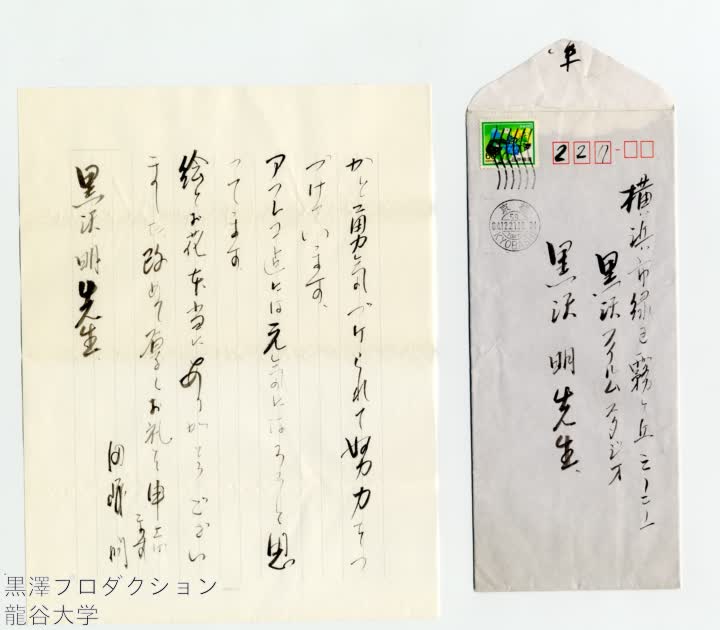 かと勇気づけられて努力をつ
づけています。
アフレコ迄には元気になろうと思
ってます
絵とお花本当にありがとうござい
ました改めて厚くお礼を申上げます
黒沢明先生
227
横浜市緑区霧ヶ丘三ー二ー一
黒沢フイルムスタジオ
黒沢明先生
黒澤プロダクション
龍谷大学